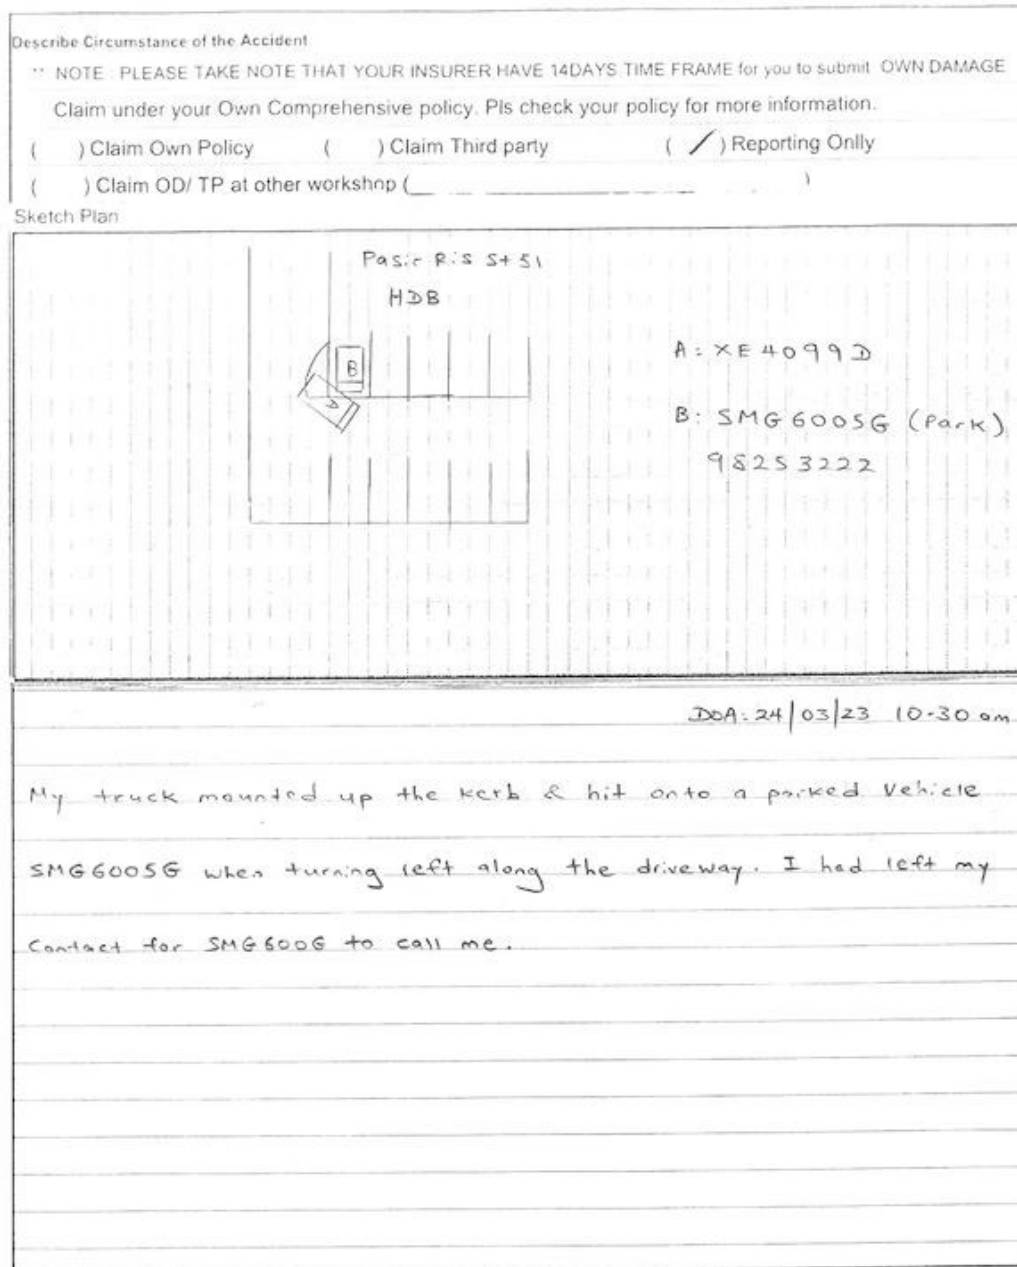 Describe Circumstance of the Accident
** NOTE : PLEASE TAKE NOTE THAT YOUR INSURER HAVE 14DAYS TIME FRAME for you to submit OWN DAMAGE
Claim under your Own Comprehensive policy. Pls check your policy for more information.
( ) Claim Own Policy ( ) Claim Third party ( / ) Reporting Onlly
( ) Claim OD/ TP at other workshop ( )
Sketch Plan
Pasir Ris St 51
HDB
B
A: XE4099D
B: SMG6005G (Park)
98253222
DOA: 24/03/23 10-30 am
My truck mounted up the kerb & hit onto a parked vehicle
SMG6005G when turning left along the driveway. I had left my
Contact for SMG600G to call me.